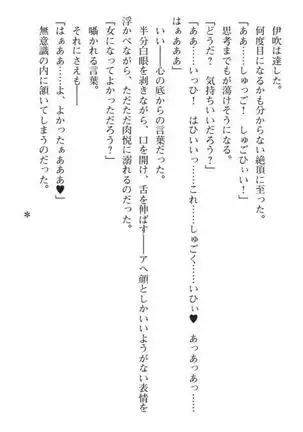 伊吹は達した。
何度目になるかも分からない絶頂に至った。
「ああ……しゅっご！　しゅごひぃい！」
思考までもが蕩けそうになる。
「どうだ？　気持ちいいだろう？」
「ああ……いっひ！　はひいいっ……これ……しゅごく……いひぃ♥　あっあっあっ……
はぁああ」
いい――心の底からの言葉だった。
半分白眼を剥きながら、口を開け、舌を伸ばす――アヘ顔としかいいようがない表情を
浮かべながら、ただただ肉悦に溺れるのだった。
「女になってよかっただろう？」
囁かれる言葉。
それにさえも――
「はぁああ……よ、よかったぁあああ♥」
無意識の内に頷いてしまうのだった。
＊